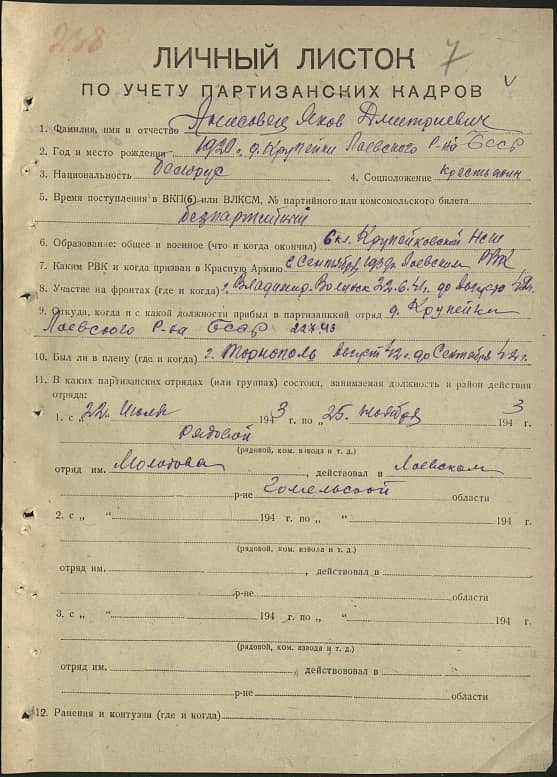 238
7
v
ЛИЧНЫЙ ЛИСТОК
ПО УЧЕТУ ПАРТИЗАНСКИХ КАДРОВ
1. Фамилия, имя и отчество Яков Дмитриевич
2. Год и место рождения 1920 г. д. Крупейки Лоевского Р-на БССР
3. Национальность белорус 4. Соцположение крестьянин
5. Время поступления в ВКП(б) или ВЛКСМ, № партийного или комсомольского билета
безпартийный
6. Образование: общее и военное (что и когда окончил) 6 кл. Крупейковской НСШ
7. Каким РВК и когда призван в Красную Армию с Сентября Лоевским РВК
8. Участие на фронтах (где и когда) г. Владимир. Волынск 22.6.41. до август 42 г.
9. Откуда, когда и с какой должности прибыл в партизанкий отряд д. Крупейки
Лоевского Р-на БССР 22.7.43
10. Был ли в плену (где и когда) г. Август 42 г. до Сентября 42 г.
11. В каких партизанских отрядах (или группах) состоял, занимаемая должность и район действия
отряда:
1. с „22 Июля 1943 г. по „25 Ноября 1943 г.
рядовой
(рядовой, ком. взвода и т. д.)
отряд им. Молотова, действовал в Лоевском
р-не Гомельской области
2. с „ “ 194 г. по „ “ 194 г.
(рядовой, ком. взвода и т. д.)
отряд им., действовал в
р-не области
3. с „ “ 194 г. по „ “ 194 г.
(рядовой, ком. взвода и т. д.)
отряд им., действововал в
р-не области
12. Ранения и контузии (где и когда)